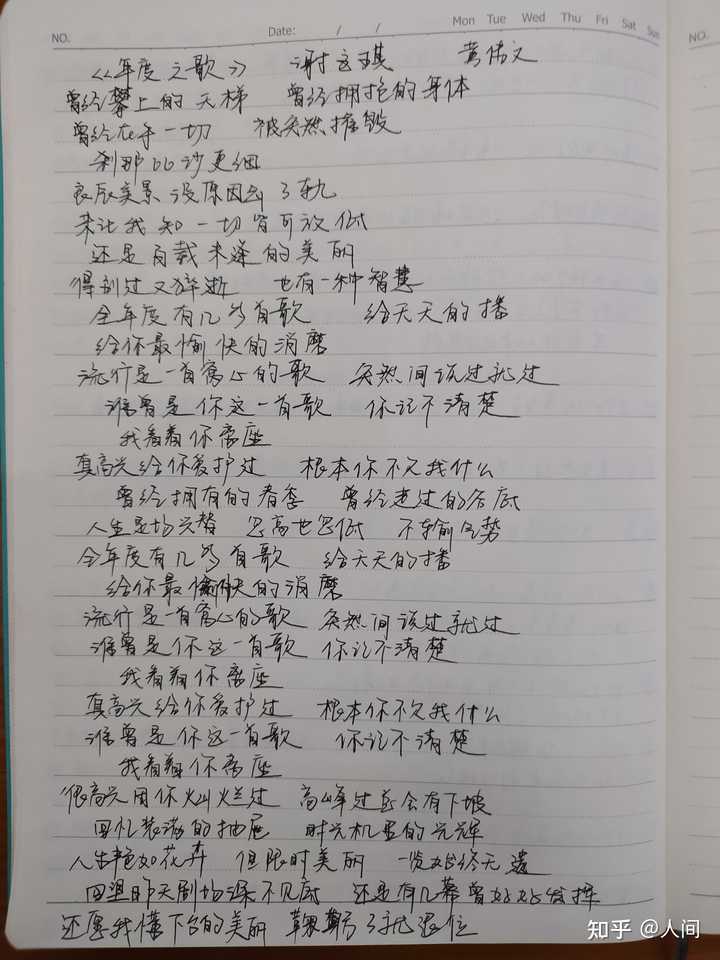 NO.
Date: / /
Mon Tue Wed Thu Fri Sat Sun
NO.
《年度之歌》 谢安琪 黄伟文
曾经攀上的天梯 曾经拥抱的身体
曾经在手一切 被突然摧毁
刹那比沙更细
良辰美景没原因出了轨
来让我知一切皆可放低
还是有载未逢的美丽
得到过又猝逝 也有一种智慧
全年度有几多首歌 给天天的播
给你最愉快的消磨
流行是一首窝心的歌 突然间说过就过
谁曾是你这一首歌 你记不清楚
我看着你离座
真高兴给你爱护过 根本你不欠我什么
曾经拥有的春季 曾经走过的谷底
人生是场兴替 忽高也忽低 不输气势
全年度有几多首歌 给天天的播
给你最愉快的消磨
流行是一首窝心的歌 突然间说过就过
谁曾是你这一首歌 你记不清楚
我看着你离座
真高兴给你爱护过 根本你不欠我什么
谁曾是你这一首歌 你记不清楚
我看着你离座
很高兴因你灿烂过 高峰过总会有下坡
回忆装满的抽屉 时光机里的光辉
人生艳如花卉 但限时美丽 一览始终无遗
回望昨天剧场深不见底 还是有几幕曾好好发挥
还愿我懂下台的美丽 鞠躬了就退位
知乎 @人间